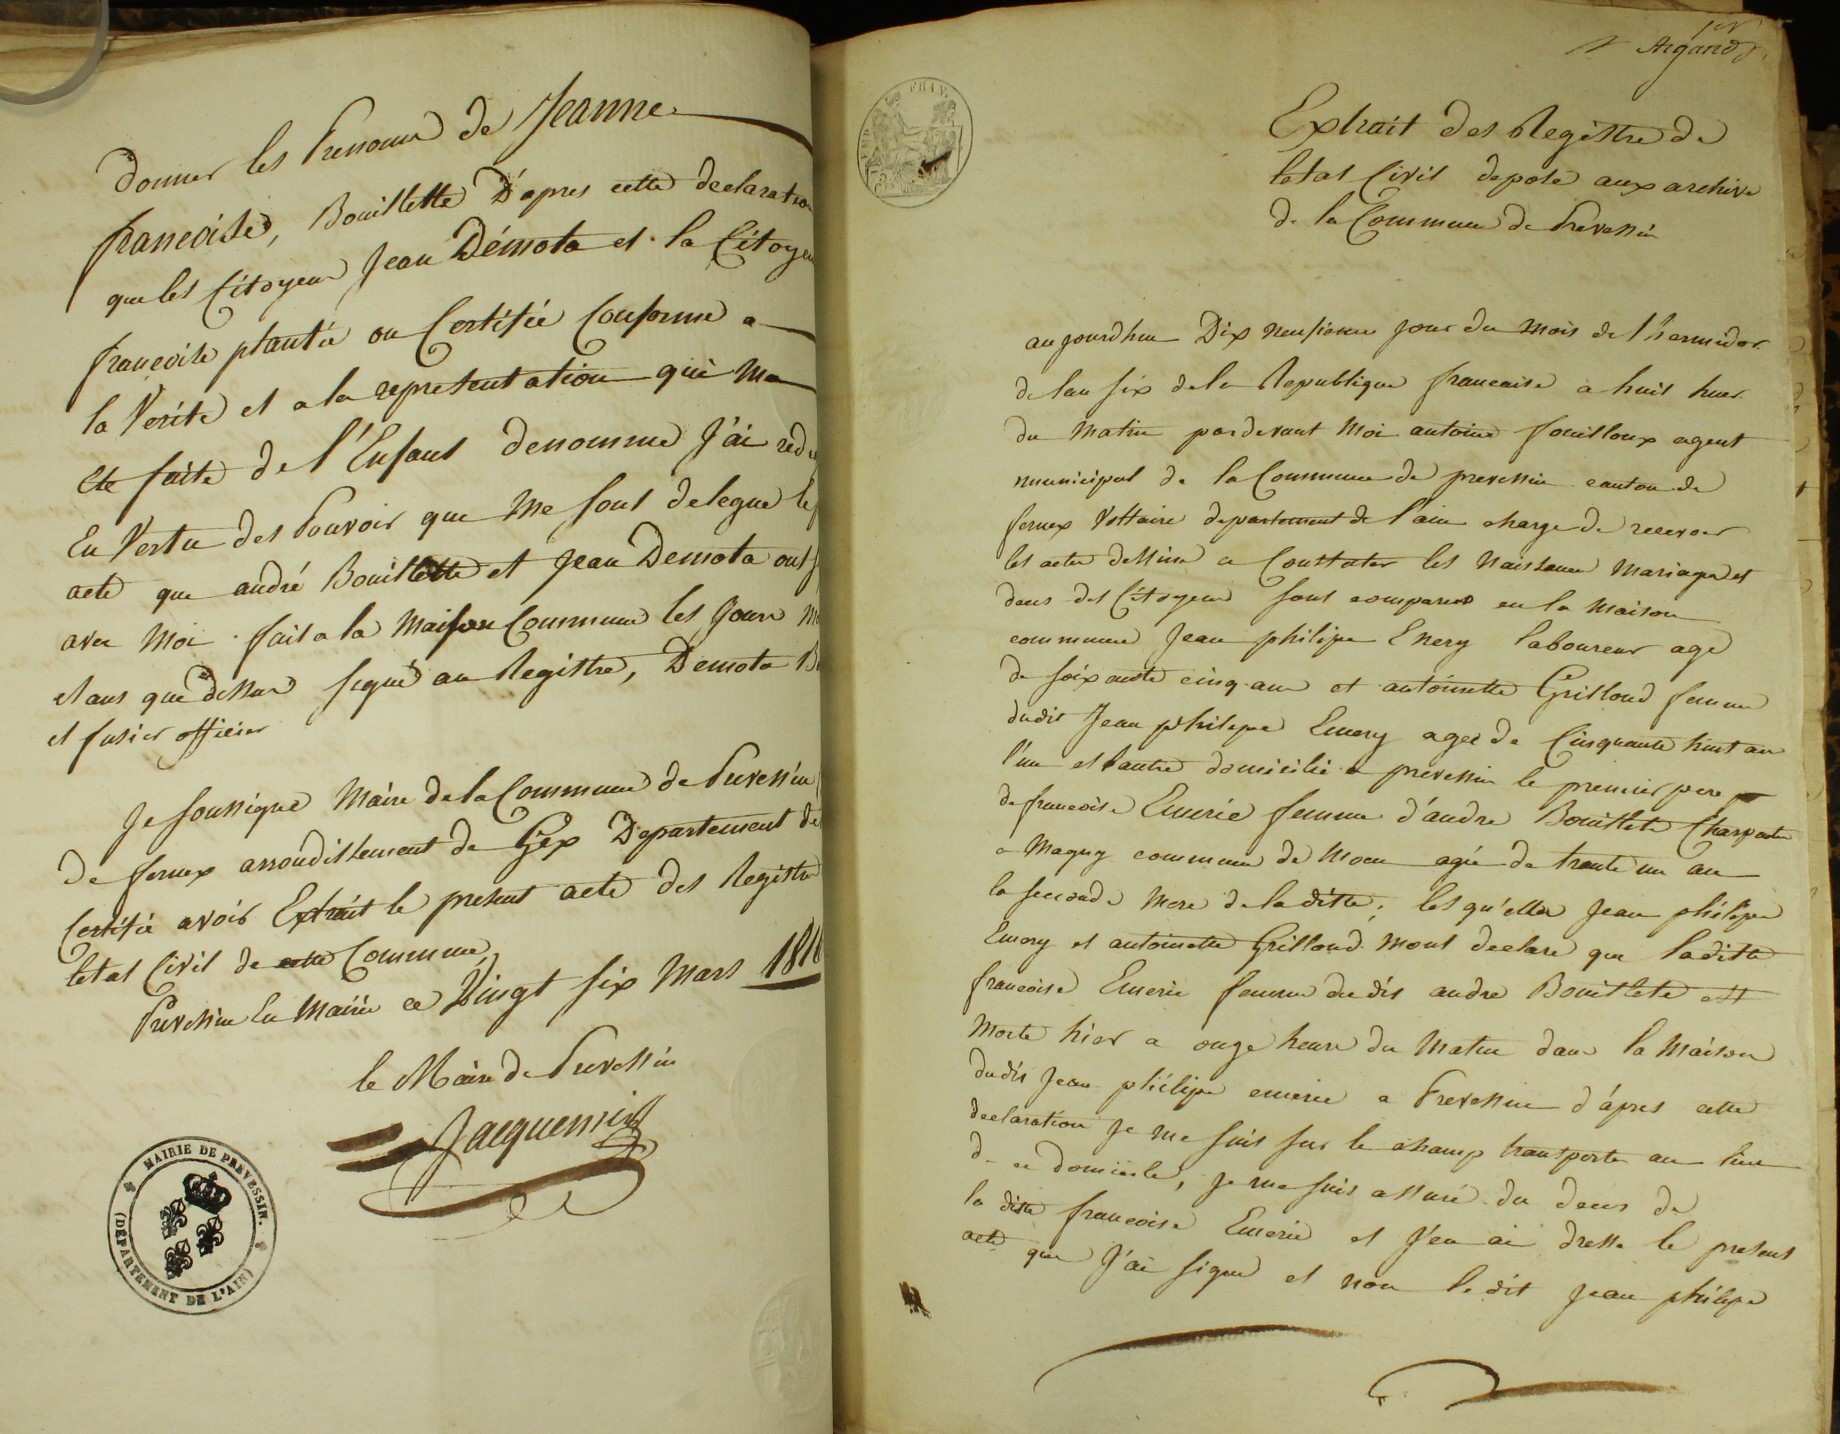 donner les Prenoms de Jeanne
francoise, Bouillette D'apres cette declaration
que les Citoyens Jean Démota et la Citoyen
francoise plantée on Certifiée Conforme a
la Verite et a la representation qui Ma
ete faite de l'Enfant denomme J'ai red
En Vertu des Pouvoir que me sont delegue le
acte que andré Bouillette et Jean Demota ont
avec Moi fait a la Maison Commune les Jours M
et ans que dessus signé au Registre, Demota B
et fusier officier
Je soussigné Maire de la Commune de Prevessin
de fernex arrondissement de Gex Departement de
Certifie avoir Extrait le present acte des Registre
letat Civil de cette Commune
Prevessin En Mairie ce Vingt six Mars 181
le Maire de Prevessin
Jacquemin
MAIRIE DE PREVESSIN.
(DÉPARTEMENT DE L'AIN)
Argand
Extrait des Registre de
letat Civil deposé aux archive
de la Commune de Prevessin
aujourdhui Dix neufieme jour du mois de Thermidor
de lan six de la Republique francaise a huit heur
du Matin pardevant Moi antoine fouilloux agent
municipal de la Commune de prevessin canton de
fernex Voltaire departement de l'ain charge de recevoir
les actes destine a Constater les Naissance Mariage et
deces des Citoyens sont comparus en la Maison
commune Jean philipe Emery laboureur age
de soixante cinq ans et antoinette Grilloud femme
dudit Jean philipe Emery agee de Cinquante huit an
l'un et lautre domicilié a prevessin le premier pere
de francoise Emerie femme d'andre Bouillete Charpentie
a Magny commune de Moen agée de trante un an
la seconde Mere de la ditte; lesqu'elles Jean philipe
Emery et antoinette Grilloud mont declare que laditte
francoise Emerie femme du dis andre Bouillete est
Morte hier a onze heure du Matin dans la Maison
dudis Jean philipe emerie a Prevessin d'apres cette
declaration je me suis sur le champ transporte au lieu
de ce domicile, je me suis assuré du deces de
la ditte francoise Emerie et J'en ai dresse le present
acte que J'ai signe et non le dit Jean philipe